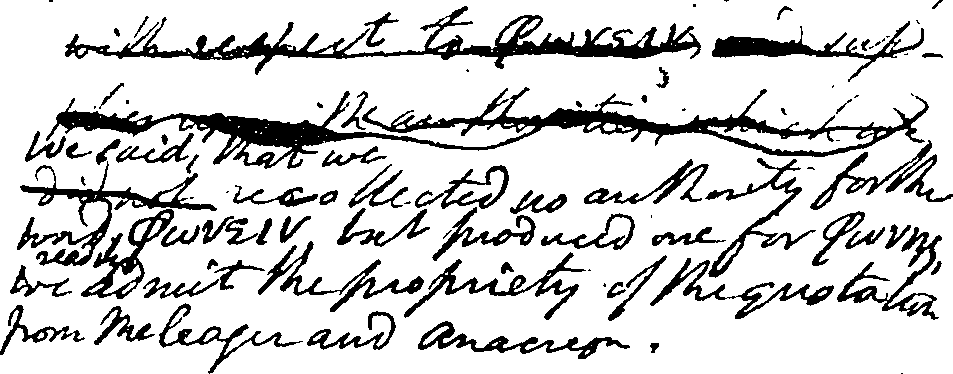 with respect to Φωνειν, and sup-
plies us with the authorities, which we
We said, that we
did not recollected no authority for the
word, Φωνειν, but produced one for Φωνης,
readily
we admit the propriety of the quotation
from Meleager and Anacreon.